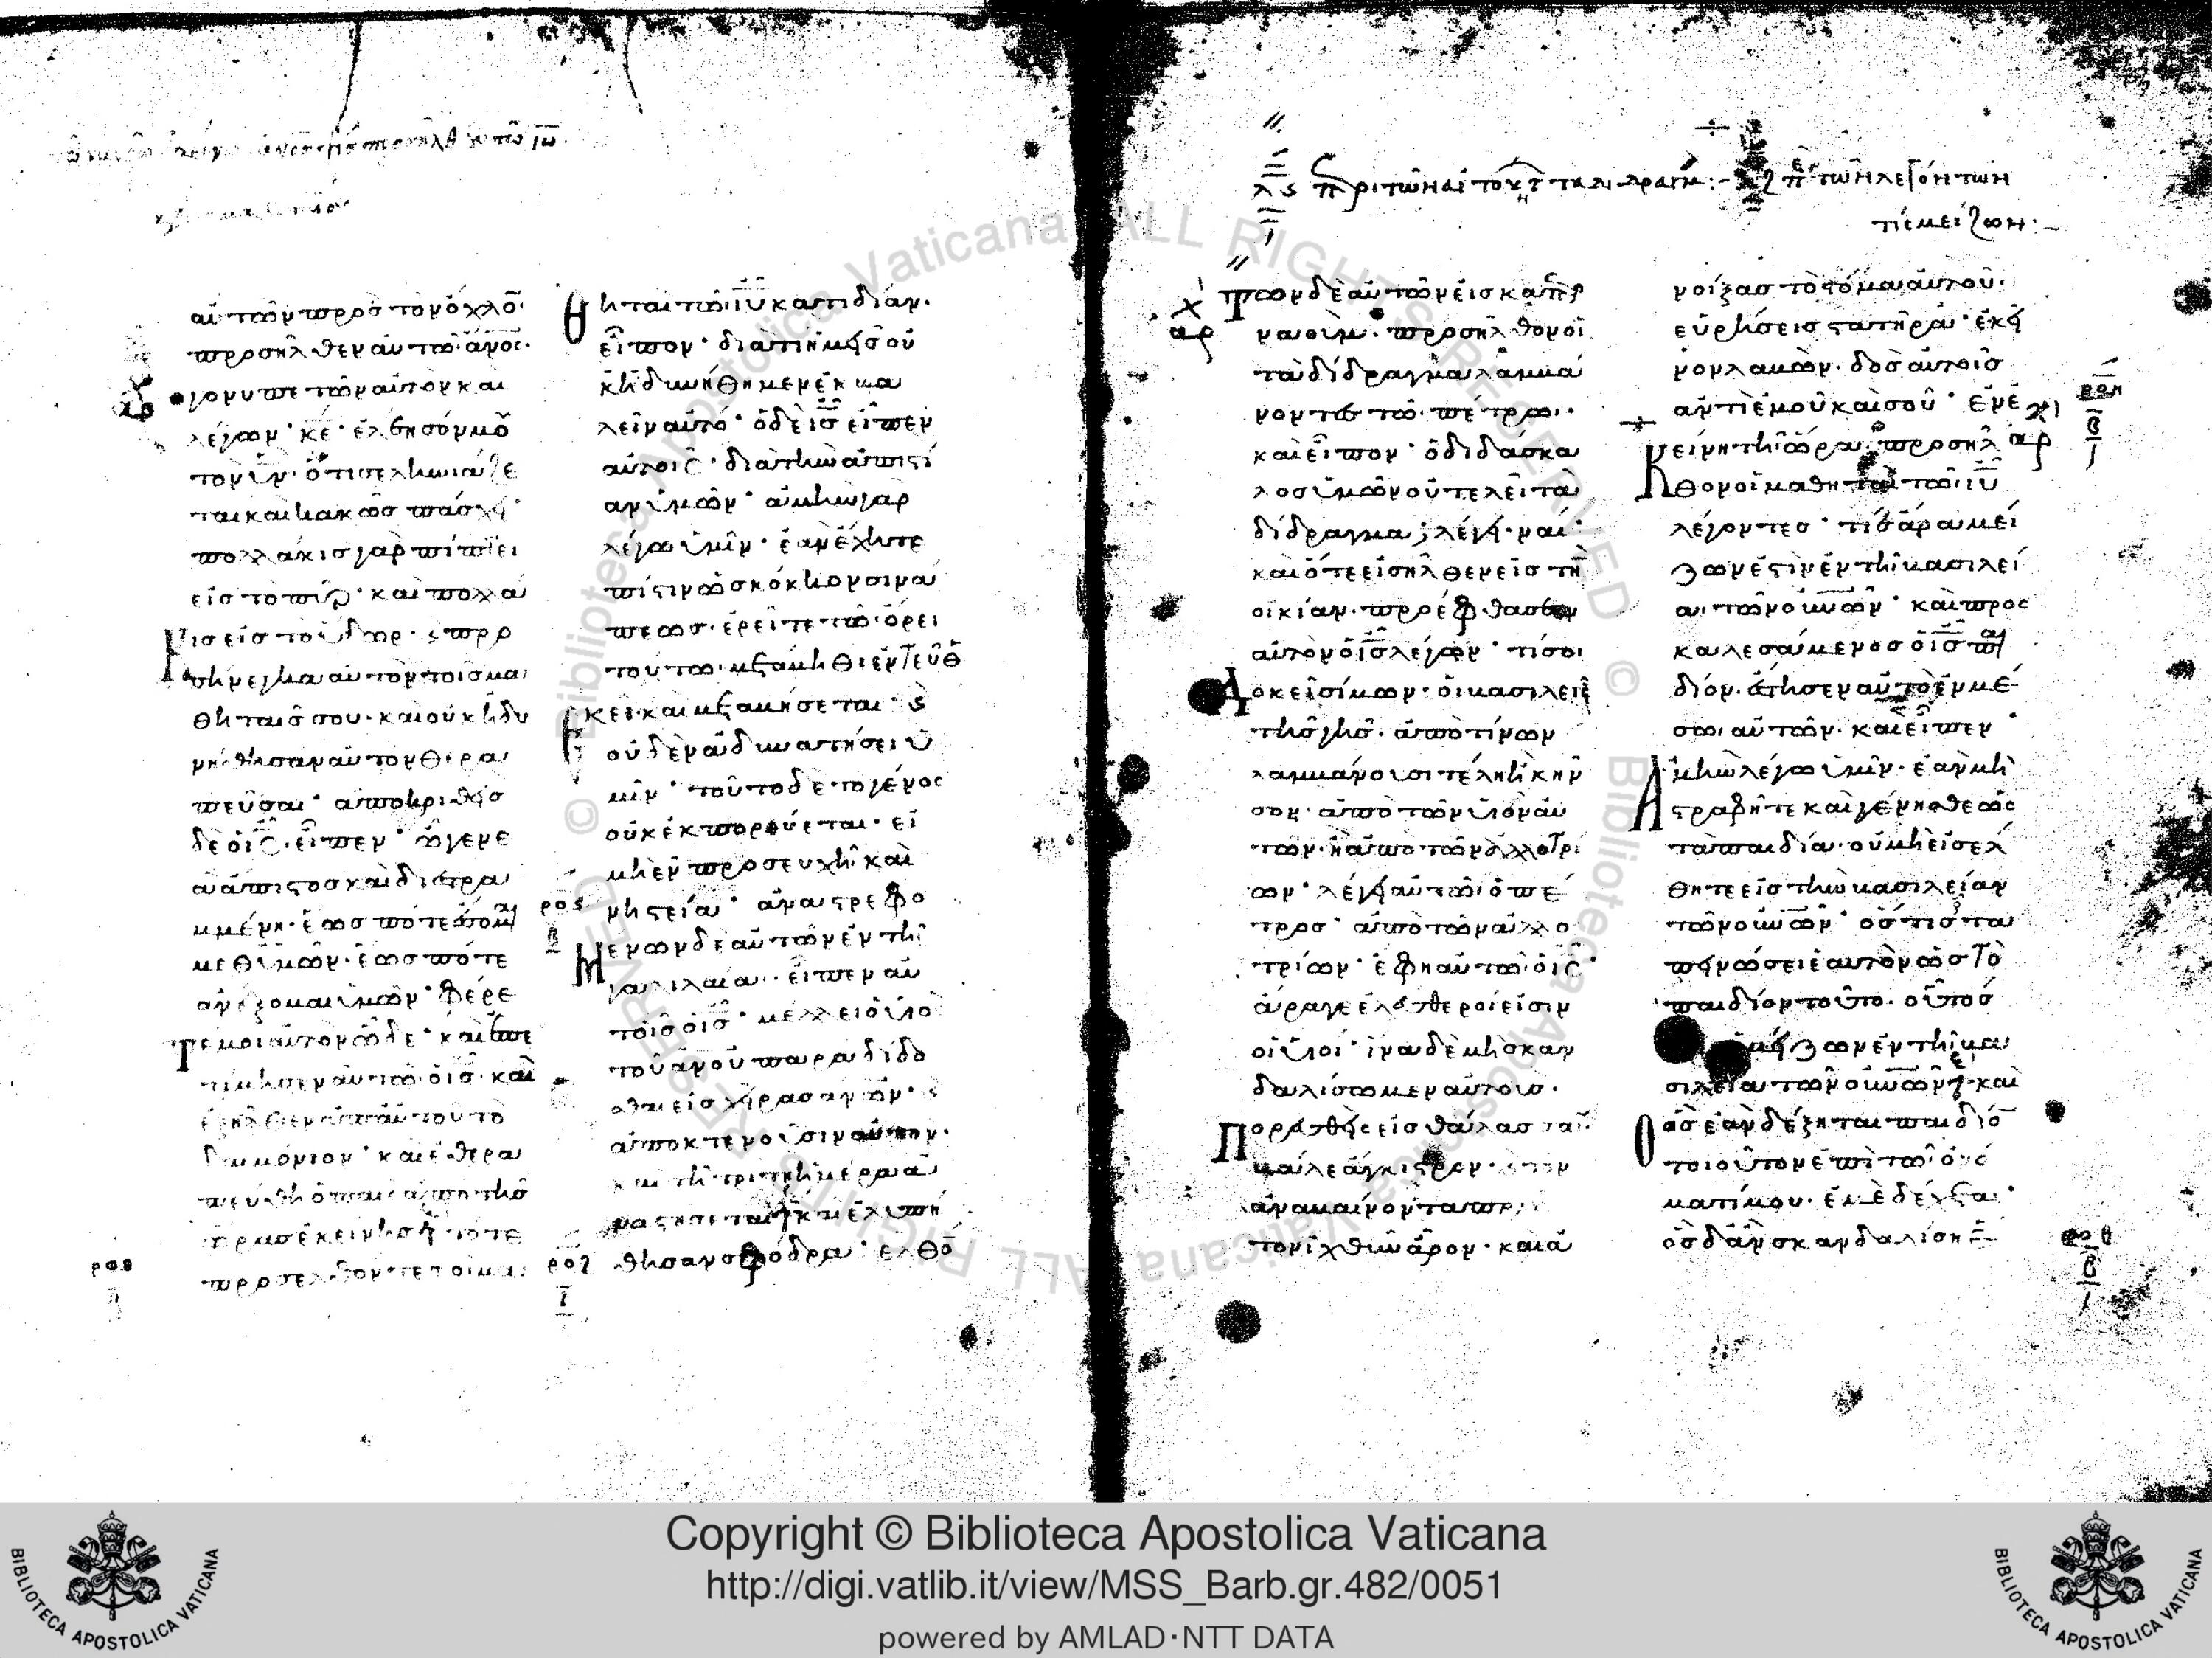 αὐτῶν πρὸς τὸν ὄχλο̅·
προσῆλθεν αὐτῶ α̅ν̅ο̅ς̅·
γονυπετῶν αὐτὸν και
λέγων· κ̅ε̅· ἐλέησόν μου
τὸν υ̅ν̅· ὅτι σεληνιάζε
ται καὶ κακῶς πάσχει·
πολλάκις γὰρ πίπτει
εἰς τὸ πῦρ· καὶ πολλά
κις εἰς τὸ ὕδωρ· ϗ προ
σήνεγκα αὐτὸν τοῖς μα
θηταῖς σου· καὶ οὐκ ἠδυ
νήθησαν αὐτὸν θερα
πεῦσαι· ἀποκριθεὶς
δὲ ὁ ι̅ς̅· εἶπεν· ὦ γενε
ὰ ἄπιστος καὶ διεστρα
μμένη· ἕως πότε ἔσομαι
μεθ' ὑμῶν· ἕως πότε
ἀνέξομαι ὑμῶν· φέρε
τέ μοι αὐτὸν ὧδε· καὶ ἐπε
τίμησεν αὐτῶ ὁ ι̅ς̅· καὶ
ἐξῆλθεν ἀπ' αὐτοῦ τὸ
δαιμόνιον· καὶ ἐθερα
πεύθη ὁ παῖς ἀπὸ τῆς
ὥρας ἐκείνης τότε
προσελθόντες οἱ μα
ροε
θηταὶ τῶ ι̅υ̅ κατιδίαν·
εἶπον· διατί ἡμεῖς οὐ
κ ἠδυνήθημεν ἐκβα
λεῖν αὐτό· ὁ δὲ ι̅ς̅ εἶπεν
αὐτοῖς· διὰ τὴν ἀπιστί
αν ὑμῶν· ἀμὴν γὰρ
λέγω ὑμῖν· ἐὰν ἔχητε
πίστιν ὡς κόκκον σινά
πεως· ἐρεῖτε τῶ ὄρει
τούτω· μετάβηθι ἐντεῦθεν
ἐκεῖ· καὶ μεταβήσεται· ϗ
οὐδὲν ἀδυνατήσει ὑ
μῖν· τοῦτο δὲ τὸ γένος
οὐκ ἐκπορεύεται· εἰ
μὴ ἐν προσευχῆ καὶ
νηστεία· ἀναστρεφο
μένων δὲ αὐτῶν ἐν τῆ
γαλιλαία· εἶπεν αὐ
τοῖς ὁ ι̅ς̅· μέλλει ὁ υἱὸ
τοῦ α̅ν̅ο̅υ̅ παραδίδο
σθαι εἰς χεῖρας α̅ν̅ω̅ν̅· ϗ
ἀποκτενοῦσιν αὐτόν·
καὶ τῆ τρίτη ἡμέρα ἀ
ναστήσεται καὶ ἐλυπή
θησαν σφόδρα· ἐλθό
ρος
β
ροζ
ι
λς περὶ τῶν αἰτούντων τὰ δίδραγμ:-
λζ περὶ τῶν λεγόντων
τίς μείζων:-
των δὲ αὐτῶν εἰς καπερ
ναούμ· προσῆλθον οἱ
τὰ δίδραγμα λαμβά
νοντες τῶ πέτρω·
καὶ εἶπον· ὁ διδάσκα
λος ὑμῶν οὐ τελεῖ τὰ
δίδραγμα; λέγει· ναί·
καὶ ὅτε εἰσῆλθεν εἰς τὴν
οἰκίαν· προέφθασεν
αὐτὸν ὁ ι̅ς̅ λέγων· τί σοι
δοκεῖ σίμων· οἱ βασιλεῖς
τῆς γῆς· ἀπὸ τίνων
λαμβάνουσι τέλη ἢ κῆν
σον· ἀπὸ τῶν υἱῶν αὐ
τῶν· ἢ ἀπὸ τῶν ἀλλοτρί
ων· λέγει αὐτῶ ὁ πέ
τρος· ἀπὸ τῶν ἀλλο
τρίων· ἔφη αὐτῶ ὁ ι̅ς̅·
ἄραγε ἐλεύθεροί εἰσιν
οἱ υἱοί· ἵνα δὲ μὴ σκαν
δαλίσωμεν αὐτούς·
πορευθεὶς εἰς θάλασσαν
βάλε ἄγκιστρον· ϗ τὸν
ἀναβαίνοντα πρῶ
τον ἰχθὺν ἆρον· καὶ ἀ
νοίξας τὸ στόμα αὐτοῦ·
εὑρήσεις στατῆρα· ἐκεῖ
νον λαβὼν· δὸς αὐτοῖς
ἀντὶ ἐμοῦ καὶ σοῦ· ἐν ἐ
κείνη τῆ ὥρα· προσῆλ
θον οἱ μαθηταὶ τῶ ι̅υ̅
λέγοντες· τίς ἄρα μεί
ζων ἐστὶν ἐν τῆ βασιλεί
α τῶν ου̅ν̅ω̅ν̅· καὶ προς
καλεσάμενος ὁ ι̅ς̅ παι
δίον· ἔστησεν αὐτὸ ἐν μέ
σω αὐτῶν· καὶ εἶπεν·
ἀμὴν λέγω ὑμῖν· ἐὰν μὴ
στραφῆτε καὶ γένησθε ὡς
τὰ παιδία· οὐ μὴ εἰσέλ
θητε εἰς τὴν βασιλείαν
τῶν ου̅ν̅ω̅ν̅· ὅστις τα
πεινώσει ἑαυτὸν ὡς τὸ
παιδίον τοῦτο· οὗτός
μείζων ἐν τῆ βα
σιλεία τῶν ου̅ν̅ω̅ν̅ καὶ
ὃς ἐὰν δέξηται παιδίο̅
τοιοῦτον ἐπὶ τῶ ὀνό
ματί μου· ἐμὲ δέχεται·
ὃς δ' ἂν σκανδαλίση ἕ̅
ροη
β
ροθ
β
Copyright © Biblioteca Apostolica Vaticana
http://digi.vatlib.it/view/MSS_Barb.gr.482/0051
powered by AMLAD·NTT DATA
BIBLIOTECA APOSTOLICA VATICANA
BIBLIOTECA APOSTOLICA VATICANA